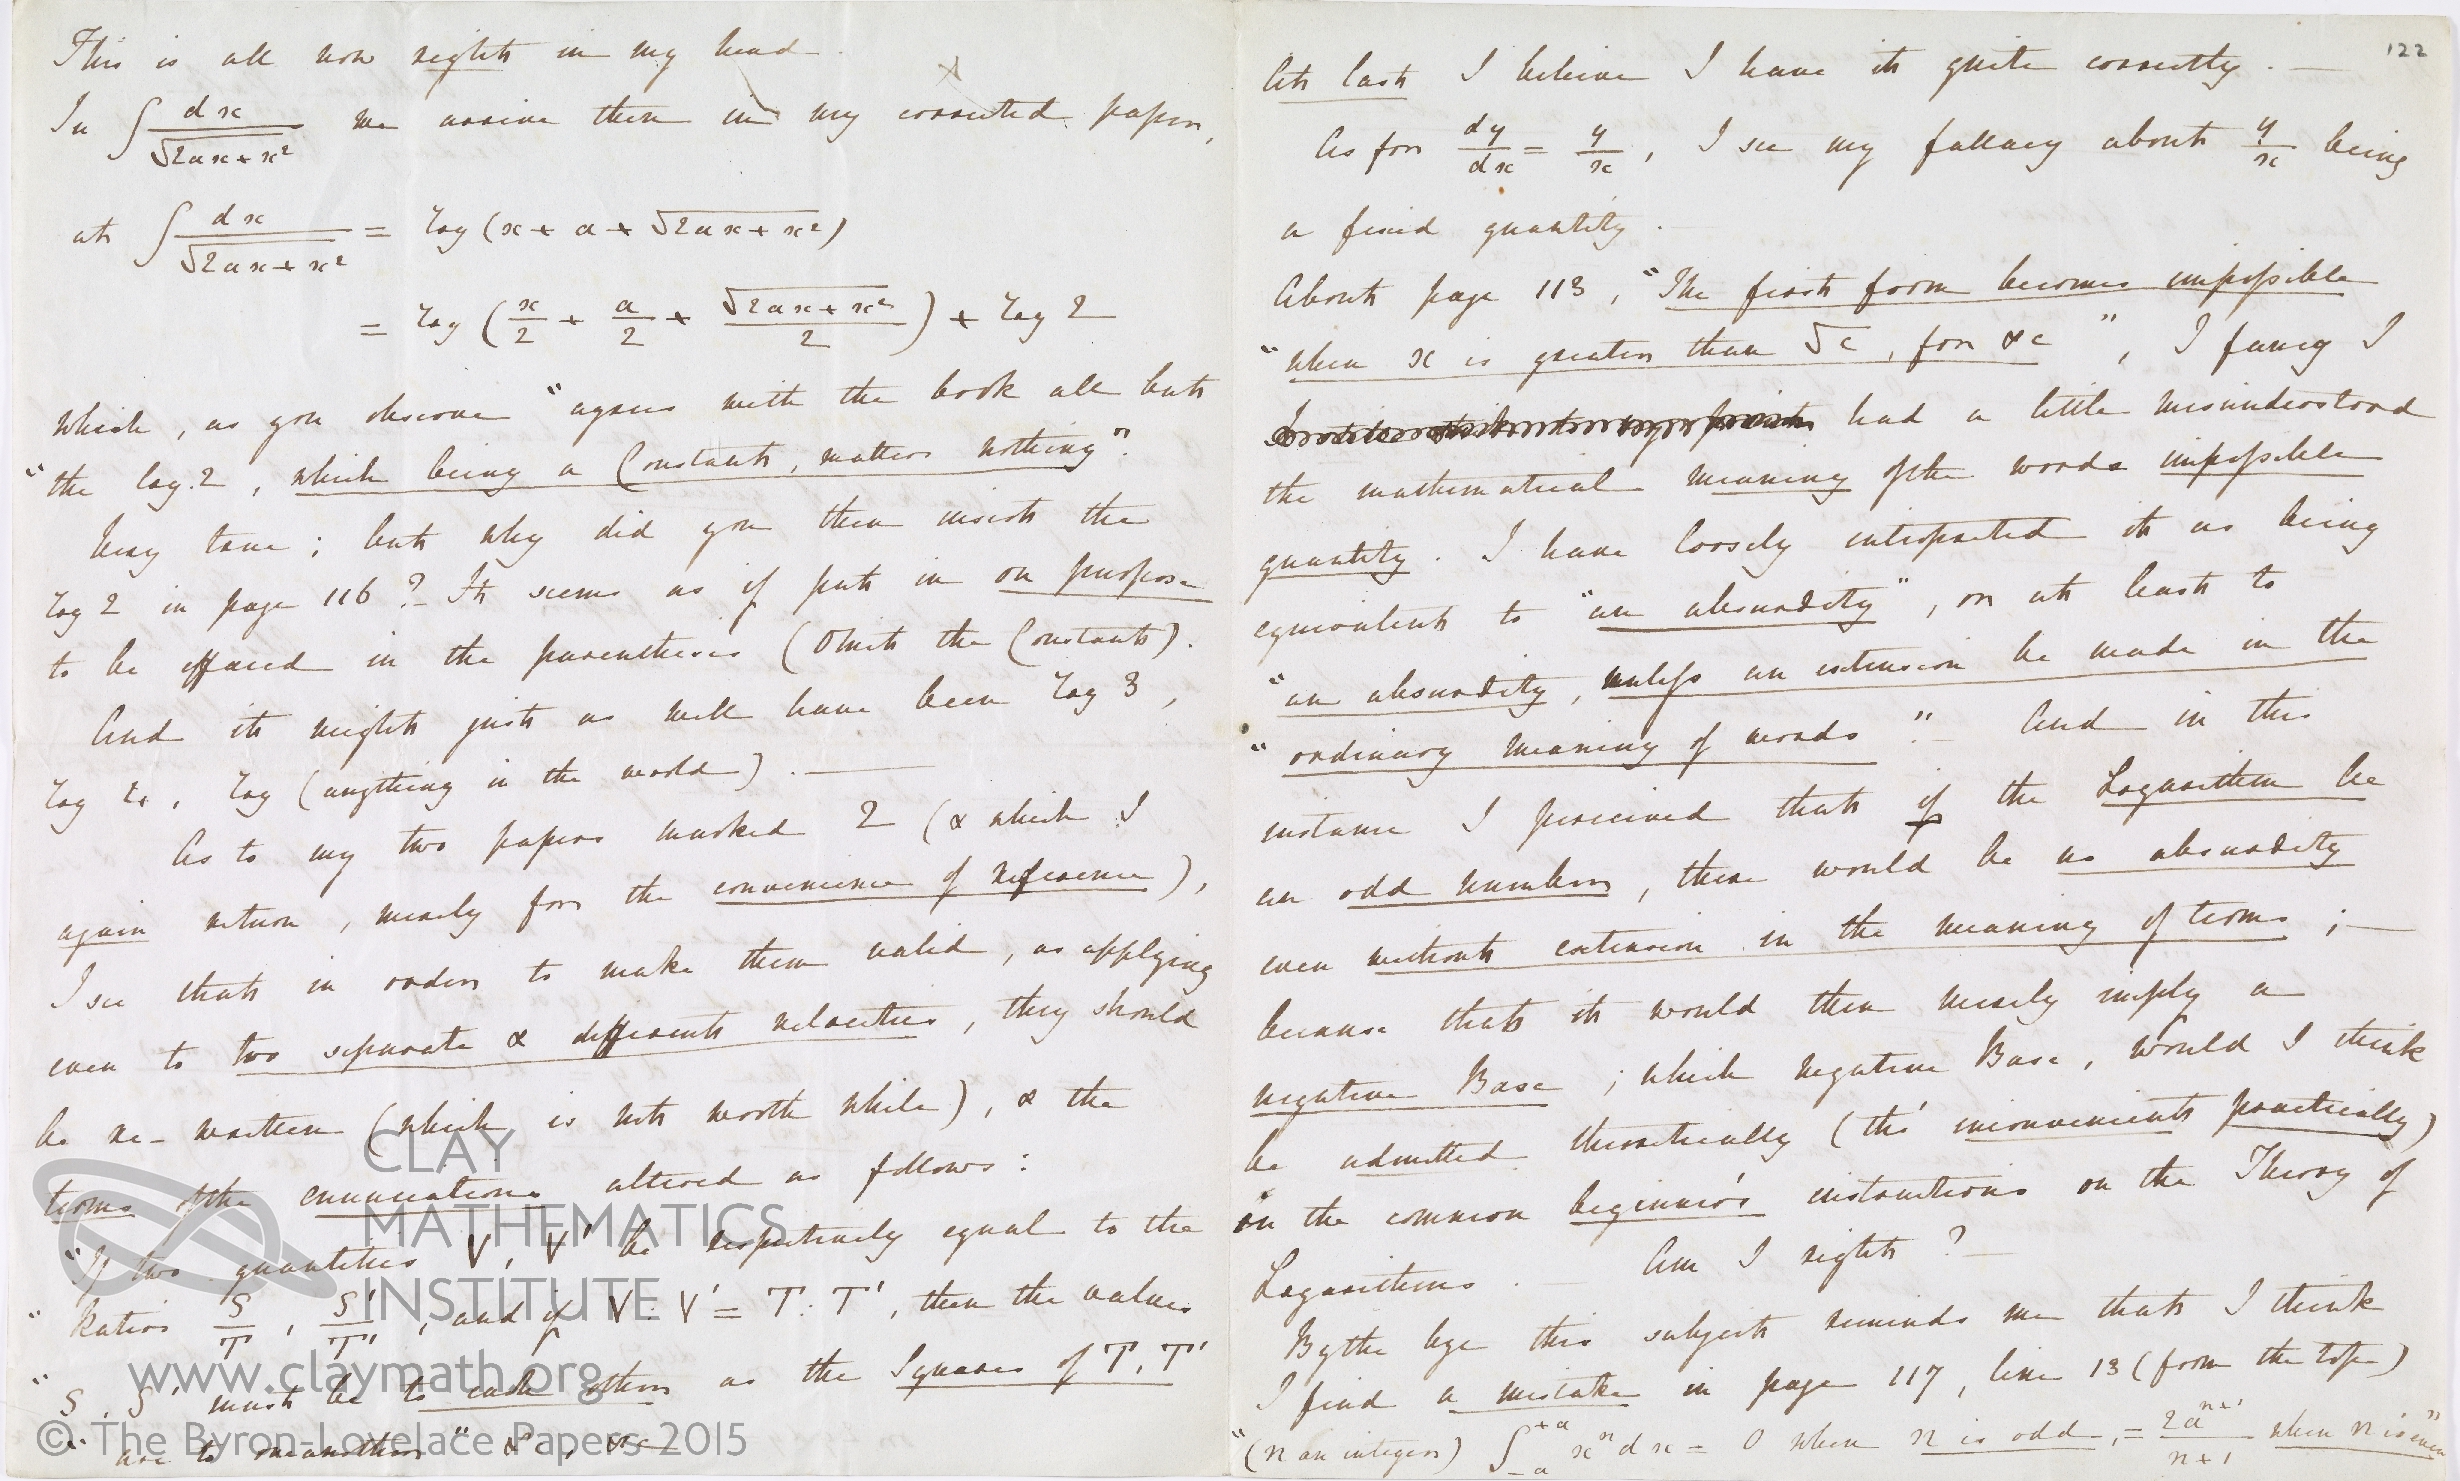 This is all now right in my head.
In ∫ dx/√2ax+x² we arrive then in my corrected paper,
at ∫ dx/√2ax+x² = log (x + a + √2ax+x²)
= log (x/2 + a/2 + √2ax+x²/2) + log 2
which, as you observe "agrees with the book all but
"the log. 2, which being a Constant, matters nothing".
Very true; but why did you then insert the
log 2 in page 116? It seems as if put in on purpose
to be effaced in the parenthesis (Omit the Constant).
And it might just as well have been log 3,
log 4, log (anything in the world). —
As to my two papers marked 2 (& which I
again return, merely for the convenience of reference),
I see that in order to make them valid, as applying
even to two separate & different velocities, they should
be re-written (which is not worth while), & the
terms of the enunciation altered as follows:
"If two quantities V, V' be respectively equal to the
"Ratios S/T, S'/T', and if V : V' = T : T', then the values
"S, S' must be to each other as the Squares of T, T'
"are to one another" &c, &c
122
At last I believe I have it quite correctly. —
As for dy/dx = y/x, I see my fallacy about y/x being
a fixed quantity.
About page 113, "The first form becomes impossible
"when x is greater than √c, for &c", I fancy I
had a little misunderstood
the mathematical meaning of the words impossible
quantity. I have loosely interpreted it as being
equivalent to "an absurdity", or at least to
"an absurdity, unless an extension be made in the
"ordinary meaning of words". — And in this
instance I perceived that if the Logarithm be
an odd number, there would be no absurdity
even without extension in the meaning of terms; —
because that it would then merely imply a
negative Base; which negative Base, would I think
be admitted theoretically (tho' inconvenient practically)
in the common beginner's instructions on the Theory of
Logarithms. — Am I right? —
By the bye this subject reminds me that I think
I find a mistake in page 117, line 13 (from the top)
"(n an integer) ∫₋ₐ⁺ᵃ xⁿ dx = 0 when n is odd, = 2aⁿ⁺¹/n+1 when n is even"
CLAY
MATHEMATICS
INSTITUTE
www.claymath.org
© The Byron-Lovelace Papers 2015